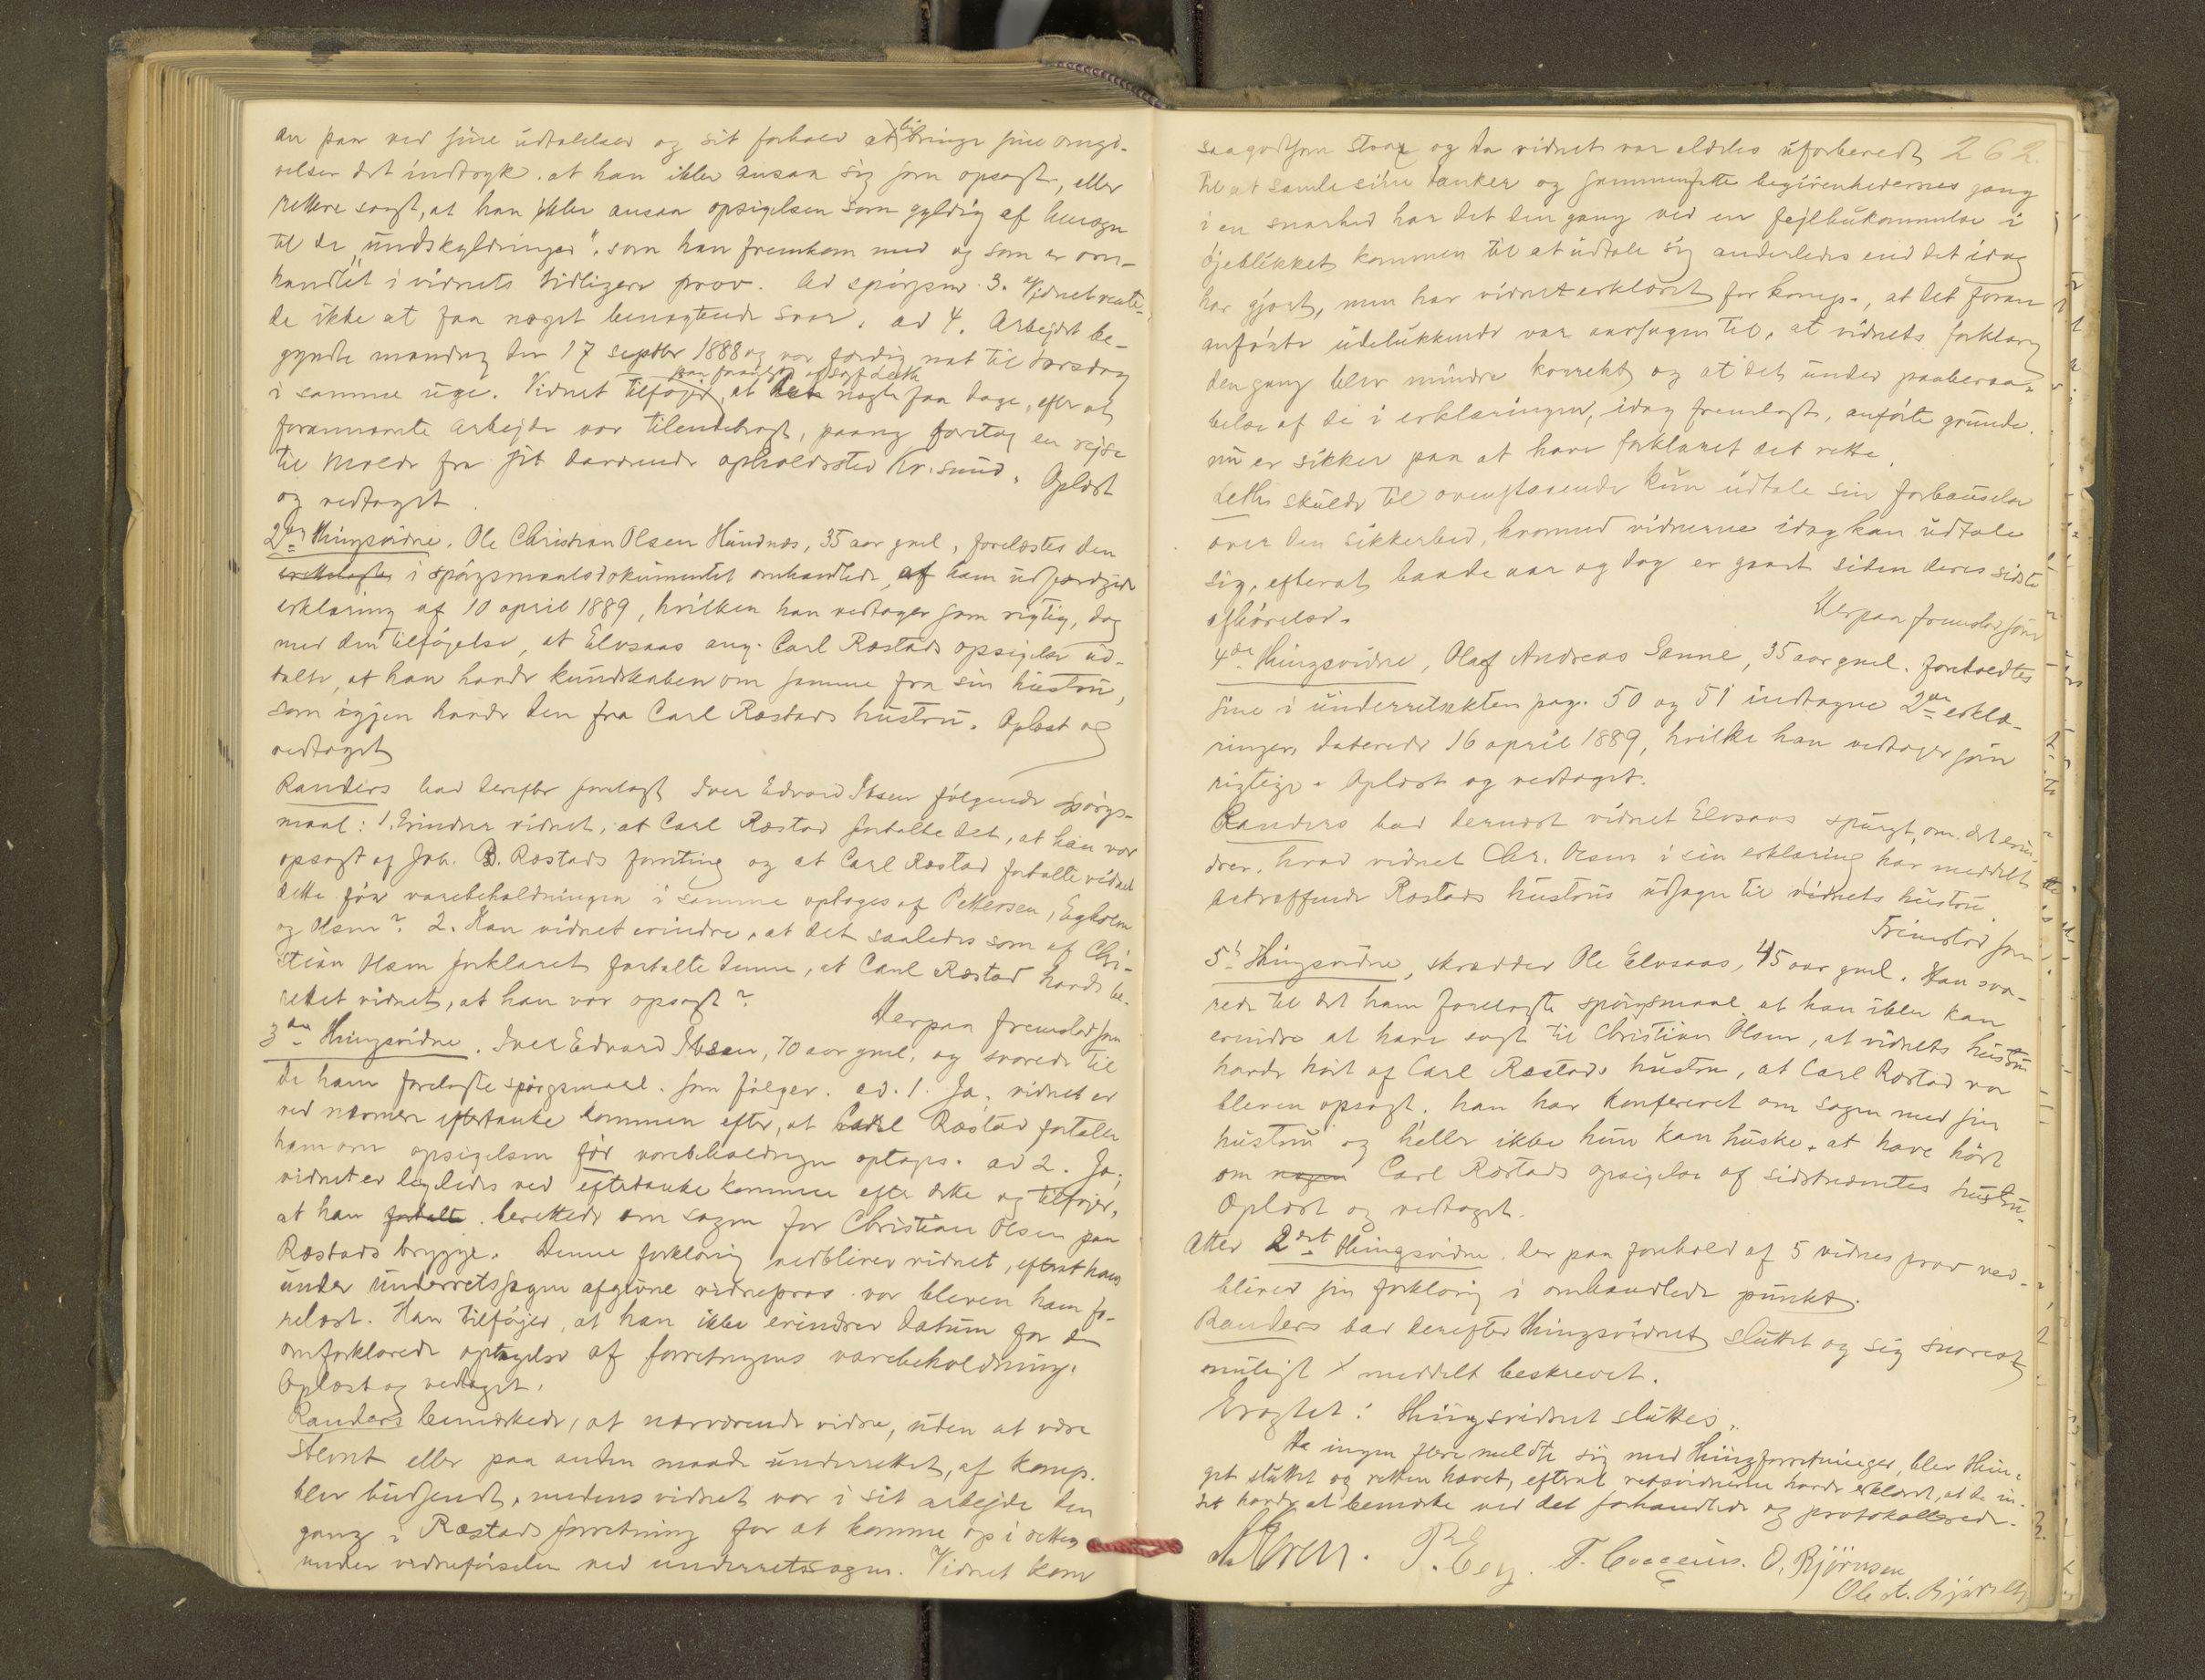 an paa ved sine udtalelser og sit forhold at bibringe sine omgi-
velser det indtryk, at han ikke ansaa sig som opsagt, eller
rettere sagt, at han ikke ansaa opsigelsen som gyldig af hensyn
til de "undskyldninger", som han fremkom med og som er om-
handlet i vidnets tidligere prov. Ad spørgsm 3. Vidnet vente-
de ikke at faa noget benægtende svar. ad 4. Arbejdet be-
gyndte mandag den 17 septbr 1888 og var færdig nat til torsdag
i samme uge. Vidnet tilføjer, paa foranledning af sagf. Leth at det nogle faa dage, efter at
forannævnte arbejde var tilendebragt, paany foretog en rejse
til Molde fra sit daværende opholdssted Kr.sund. Oplæst
og vedtaget.
2det Thingsvidne. Ole Christian Olsen Hundnæs, 35 aar gml, forelæstes den
i spørgsmaalsdokumentet omhandlede, af ham udfærdigede
erklæring af 10 april 1889, hvilken han vedtager som rigtig, dog
med den tilføjelse, at Elvsaas ang. Carl Ræstads opsigelse ud-
talte, at han havde kundskaben om samme fra sin hustru,
som igjen havde den fra Carl Ræstads hustru. Oplæst og
vedtaget
Randers bad derefter forelagt Iver Edvard Ibsen følgende spørgs-
maal: 1. Erindrer vidnet, at Carl Ræstad fortalte det, at han var
opsagt af Joh. B. Ræstads forretning og at Carl Ræstad fortalte vidnet
dette før varebeholdningen i samme optoges af Pettersen, Egholm
og Olsen? 2. Kan vidnet erindre, at det saaledes som af Chri-
stian Olsen forklaret fortalte denne, at Carl Ræstad havde be-
rettet vidnet, at han var opsagt?
Derpaa fremstod som
3die Thingsvidne. Iver Edvard Ibsen, 70 aar gml, og svarede til
de ham forelagte spørgsmaal som følger. ad. 1. Ja; vidnet er
ved nærmere eftertanke kommen efter, at Carl Ræstad fortalte
ham om opsigelsen før varebeholdningen optoges. ad 2. Ja;
vidnet er ligeledes ved eftertanke kommen efter dette og tilføjer,
at han fortalte berettede om sagen for Christian Olsen paa
Ræstads brygge. Denne forklaring vedbliver vidnet, efterat hans
under underretssagen afgivne vidneprov var bleven ham fo-
relæst. Han tilføjer, at han ikke erindrer datum for den
omforklarede optagelse af forretningens varebeholdning.
Oplæst og vedtaget.
Randers bemærkede, at nærværende vidne, uden at være
stevnt eller paa anden maade underrettet, af komp.
blev budsendt, medens vidnet var i sit arbejde den
gang i Ræstads forretning for at komme op i retten
under vidneførselen ved underretssagen. Vidnet kom
262.
saagodtsom strax og da vidnet var aldeles uforberedt
til at samle sine tanker og sammenfatte begivenhedernes gang
i en snarhed har det den gang ved en fejlhukommelse i
øjeblikket kommen til at udtale sig anderledes end det idag
har gjort, men har vidnet erklæret for komp., at det foran
anførte udelukkende var aarsagen til, at vidnets forklaring
dengang blev mindre korrekt og at det under paabero-
belse af de i erklæringen, idag fremlagt, anførte grunde
nu er sikker paa at have forklaret det rette.
Leth skulde til ovenstaaende kun udtale sin forbauselse
over den sikkerhed, hvormed vidnerne idag kan udtale
sig, efterat baade aar og dag er gaaet siden deres sidste
afhørelse.
Derpaa fremstod som
4de Thingsvidne, Olaf Andreas Sanne, 35 aar gml. foreholdtes
sine i underretsakten pag. 50 og 51 indtagne 2de erklæ-
ringer, daterede 16 april 1889, hvilke han vedtager som
rigtige. Oplæst og vedtaget.
Randers bad dernæst vidnet Elvsaas spurgt, om det erin-
drer, hvad vidnet Chr. Olsen i sin erklæring har meddelt
betreffende Ræstads hustrus udsagn til vidnets hustru
Fremstod som
5t Thingsvidne, skrædder Ole Elvsaas, 45 aar gml. Han sva-
rede til det ham forelagte spørgsmaal at han ikke kan
erindre at have sagt til Christian Olsen, at vidnets hustru
havde hørt af Carl Ræstads hustru, at Carl Ræstad var
bleven opsagt. han har konfereret om sagen med sin
hustru og heller ikke hun kan huske, at have hørt
om nogen Carl Ræstads opsigelse af sidstnævntes hustru.
Oplæst og vedtaget.
Atter 2det Thingsvidne, der paa forehold af 5 vidnes prov ved-
bliver sin forklaring i omhandlede punkt.
Randers bad derefter Thingsvidnet sluttet og sig snarest
muligt meddelt beskrevet.
Eragtet: Thingsvidnet sluttes.
Da ingen flere meldte sig med Thingforretninger, blev Thin-
get sluttet og retten hævet, efterat retsvidnerne havde erklæret, at de in-
tet havde at bemærke ved det forhandlede og protokollerede.
P. Eeg. F. Coccius. O. Bjørnsen